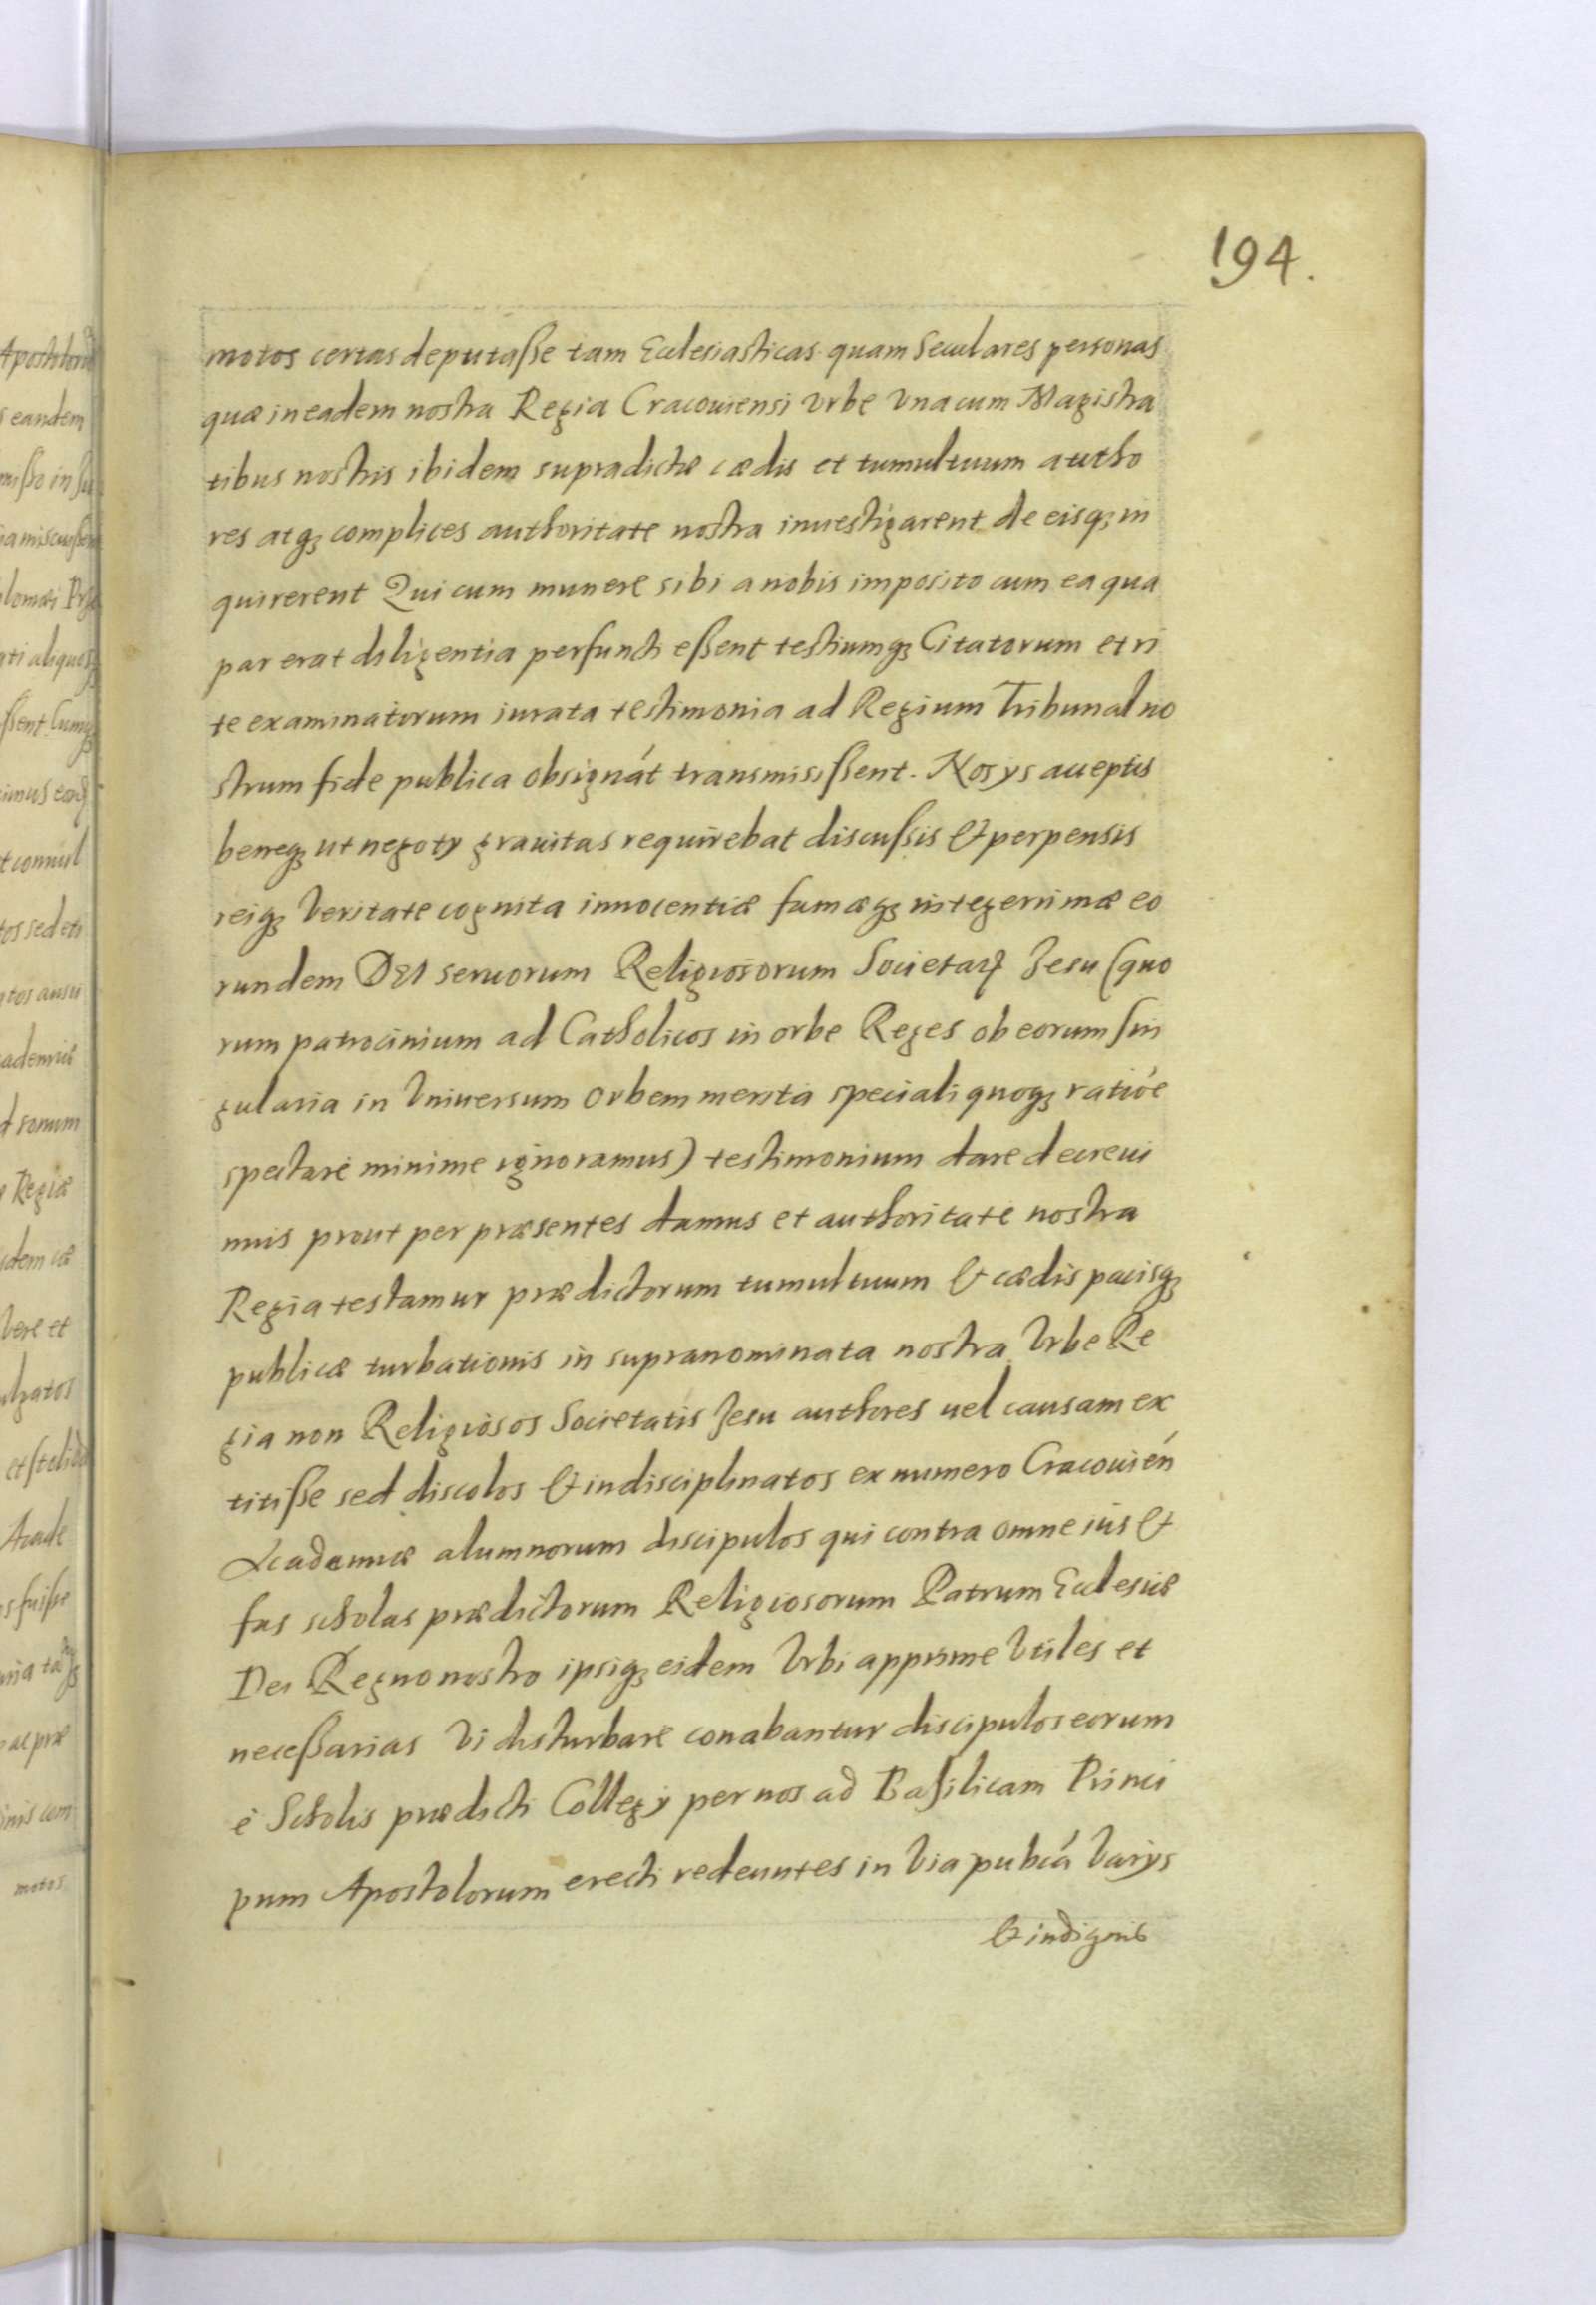 194.
motos certas deputaße tam Ecclesiasticas quam Seculares personas
quæ in eadem nostra Regia Cracouiensi Vrbe Vna cum Magistra
tibus nostris ibidem supradictæ cædis et tumultuum autho
res atq₃ complices authoritate nostra inuestigarent de eisq₃ in
quirerent Qui cum munere sibi a nobis imposito cum ea qua
par erat diligentia perfuncti eßent testiumq₃ Citatorum et ri
te examinatorum iurata testimonia ad Regium Tribunal no
strum fide publica obsignát transmisißent. Nos ys acceptis
beneq₃ ut negoty grauitas requirebat discußis & perpensis
reiq₃ Veritate cognita innocentiæ famæq₃ integerrimæ eo
rundem DEI seruorum Religiosorum Societatꝭ Jesu (quo
rum patrocinium ad Catholicos in orbe Reges ob eorum sin
gularia in Vniuersum Orbem merita speciali quoq₃ ratióe
spectare minime ignoramus) testimonium dare decreui
mus prout per præsentes damus et authoritate nostra
Regia testamur prædictorum tumultuum & cædis pacisq₃
publicæ turbationis in supranominata nostra Vrbe Re
gia non Religiosos Societatis Jesu authores uel causam ex
titiße sed discolos & indisciplinatos ex numero Cracouién
Academiæ alumnorum discipulos qui contra omne ius &
fas scholas prædictorum Religiosorum Patrum Ecclesiæ
Dei Regno nostro ipsiq₃ eidem Vrbi apprime Vtiles et
neceßarias Vi disturbare conabantur discipulos eorum
è Scholis prædicti Collegy per nos ad Basilicam Princi
pum Apostolorum erecti redeuntes in Via pubcá Varys
& indignis
Apostoloru
eandem
Regiæ
Vere et
Acade
motos